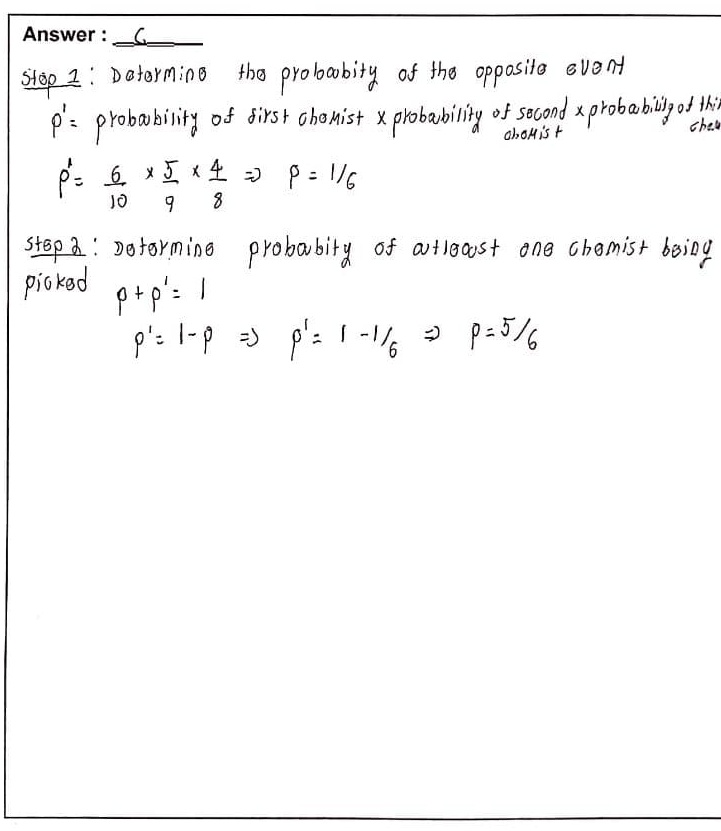 Answer : C
Step 1 : Determine the probabity of the opposite event
p' = probability of first chemist x probability of second chemist x probability of thi
chem
p' = 6/10 x 5/9 x 4/8 => p = 1/6
Step 2 : Determine probabity of atleast one chemist being
picked p + p' = 1
p' = 1 - p => p' = 1 - 1/6 => p = 5/6